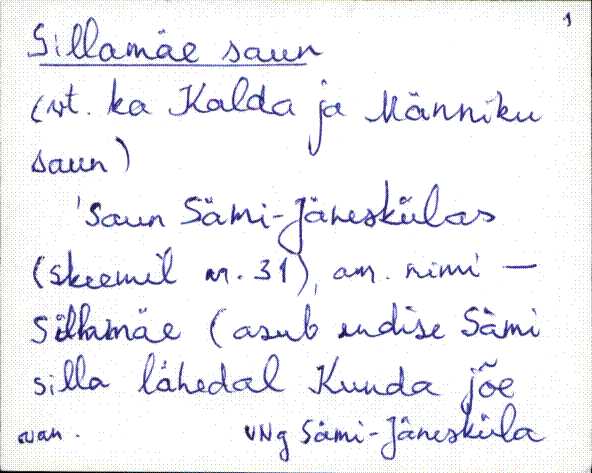 1
Sillamäe saun
(vt. ka Kalda ja Männiku
saun)
'Saun Sämi-Jäneskülas
(skeemil nr. 31), am. nimi —
Sillamäe (asub endise Sämi
silla lähedal Kunda jõe
VNg Sämi-Jäneskula